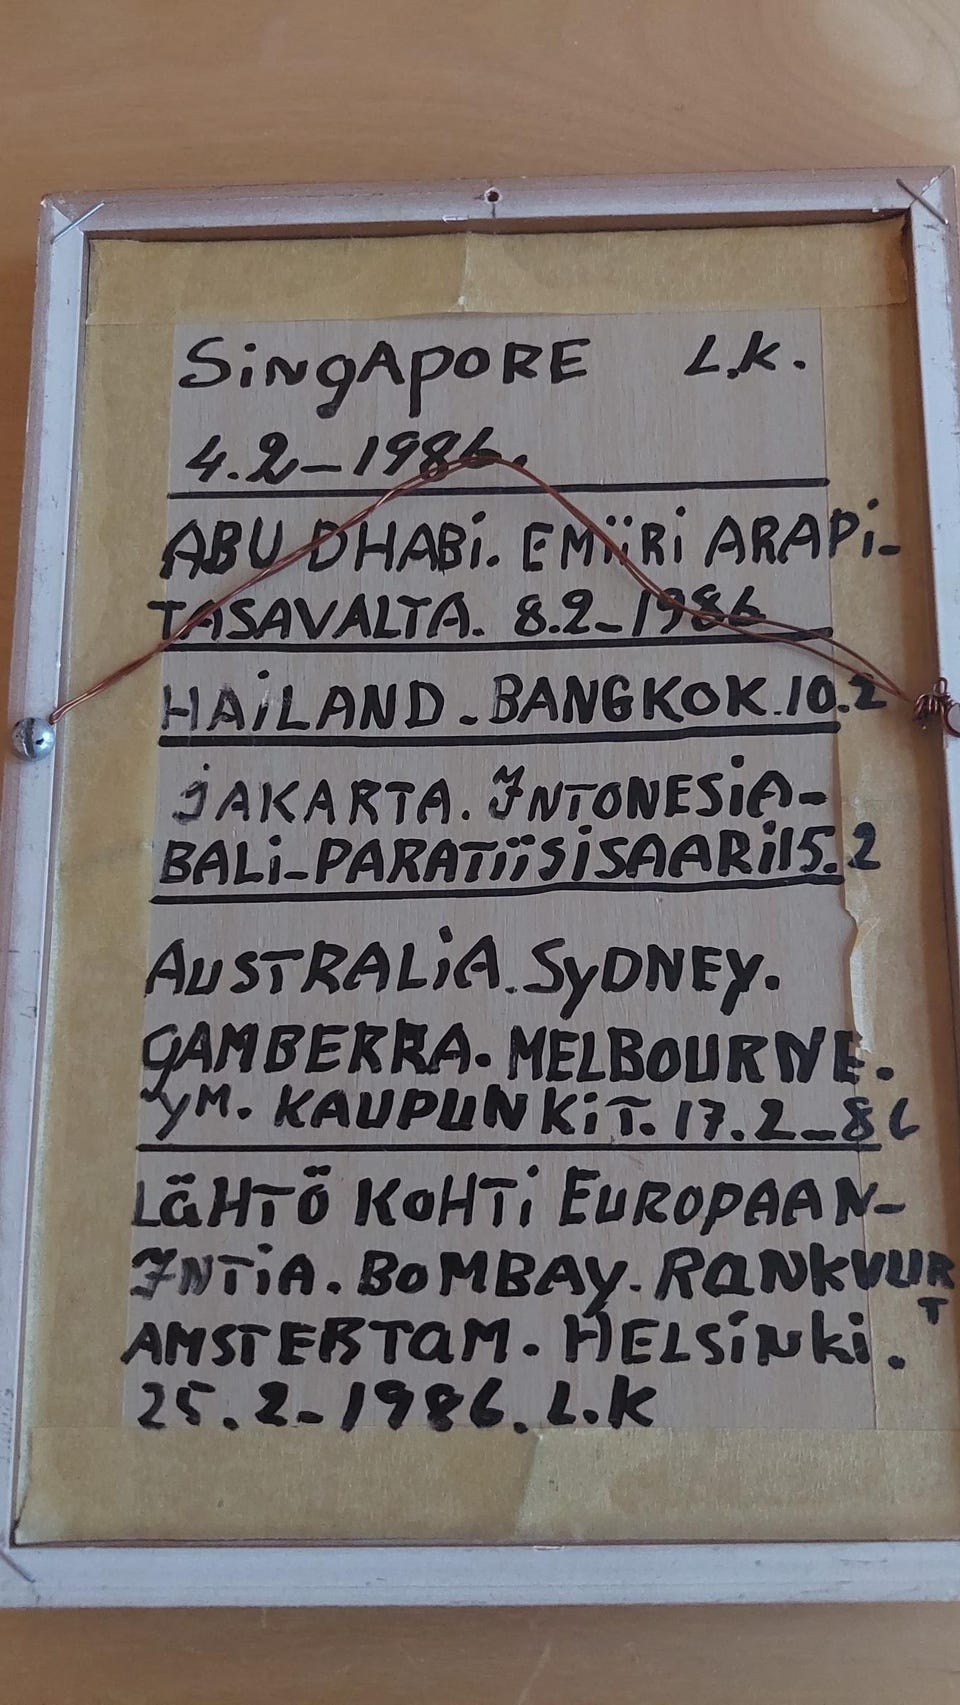 SingAPORE L.K.
4.2-1986.
ABU DHABi. EMiiRi ARAPi-
TASAVALTA. 8.2-1986
HAiLAND. BANGKOK. 10.2
JAKARTA. INTONESiA-
BALi-PARATiiSiSAARi 15.2
AUSTRALiA. SyDNEy.
GAMBERRA. MELBOURNE.
ym. KAUPUNKiT. 17.2-86
LäHTö KOHTi EUROPAAN-
INTiA. BOMBAy. RaNKVURT
AMSTERTaM. HELSiNki.
25.2-1986. L.K